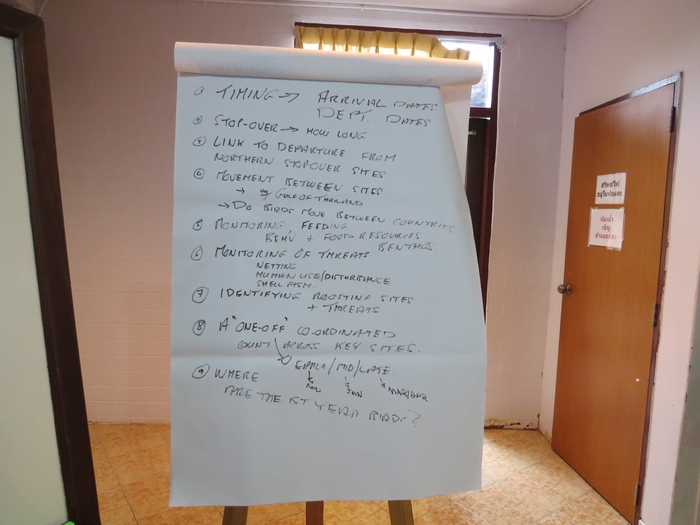 ① TIMING → ARRIVAL DATES
DEPT. DATES
② STOP-OVER → HOW LONG
③ LINK TO DEPARTURE FROM
NORTHERN STOPOVER SITES
④ MOVEMENT BETWEEN SITES
→ eg GULF OF THAILAND
→ DO BIRDS MOVE BETWEEN COUNTRIES
⑤ MONITORING FEEDING
BEHV + FOOD RESOURCES
BENTHOS
⑥ MONITORING OF THREATS
NETTING
HUMAN USE/DISTURBANCE
SHELL FISH.
⑦ IDENTIFYING ROOSTING SITES
+ THREATS
⑧ A "ONE-OFF" CO-ORDINATED
COUNT ACROSS KEY SITES.
EARLY/MID/LATE.
NOV JAN MAR/APR
⑨ WHERE
ARE THE 1ST YEAR BIRDS?